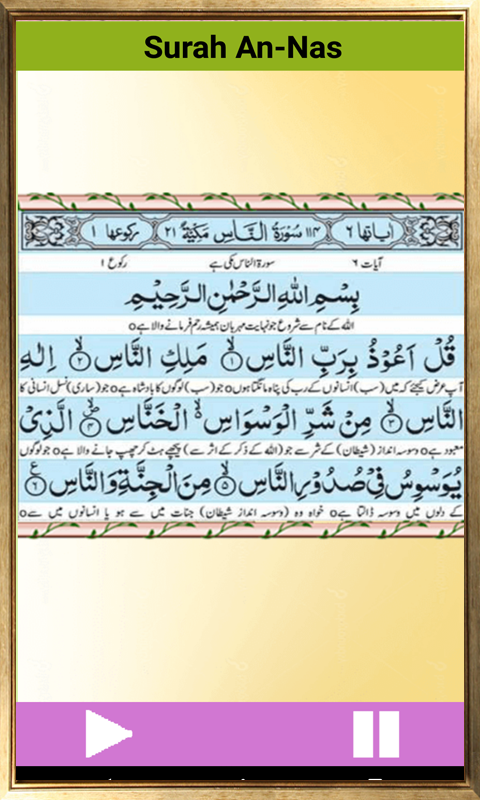 Surah An-Nas
اٰیَاتُهَا ٦ ١١٤ سُوْرَةُ النَّاسِ مَكِّيَّةٌ ٢١ رُكُوْعُهَا ١
آیات ۶ سورۃ الناس مکی ہے رکوع ۱
بِسْمِ اللّٰهِ الرَّحْمٰنِ الرَّحِيْمِ
اللہ کے نام سے شروع جو نہایت مہربان ہمیشہ رحم فرمانے والا ہے o
قُلْ اَعُوْذُ بِرَبِّ النَّاسِ ۙ﴿۱﴾ مَلِكِ النَّاسِ ۙ﴿۲﴾ اِلٰهِ
آپ عرض کیجئے کہ میں (سب) انسانوں کے رب کی پناہ مانگتا ہوں o جو (سب) لوگوں کا بادشاہ ہے o جو (ساری) نسل انسانی کا
النَّاسِ ۙ﴿۳﴾ مِنْ شَرِّ الْوَسْوَاسِ ۙ الْخَنَّاسِ ۪ۙ﴿۴﴾ الَّذِيْ
معبود ہے o وسوسہ انداز (شیطان) کے شر سے جو (اللہ کے ذکر کے اثر سے) پیچھے ہٹ کر چھپ جانے والا ہے o جو لوگوں
يُوَسْوِسُ فِيْ صُدُوْرِ النَّاسِ ۙ﴿۵﴾ مِنَ الْجِنَّةِ وَالنَّاسِ ﴿۶﴾ ع
کے دلوں میں وسوسہ ڈالتا ہے o خواہ وہ (وسوسہ انداز شیطان) جنات میں سے ہو یا انسانوں میں سے o